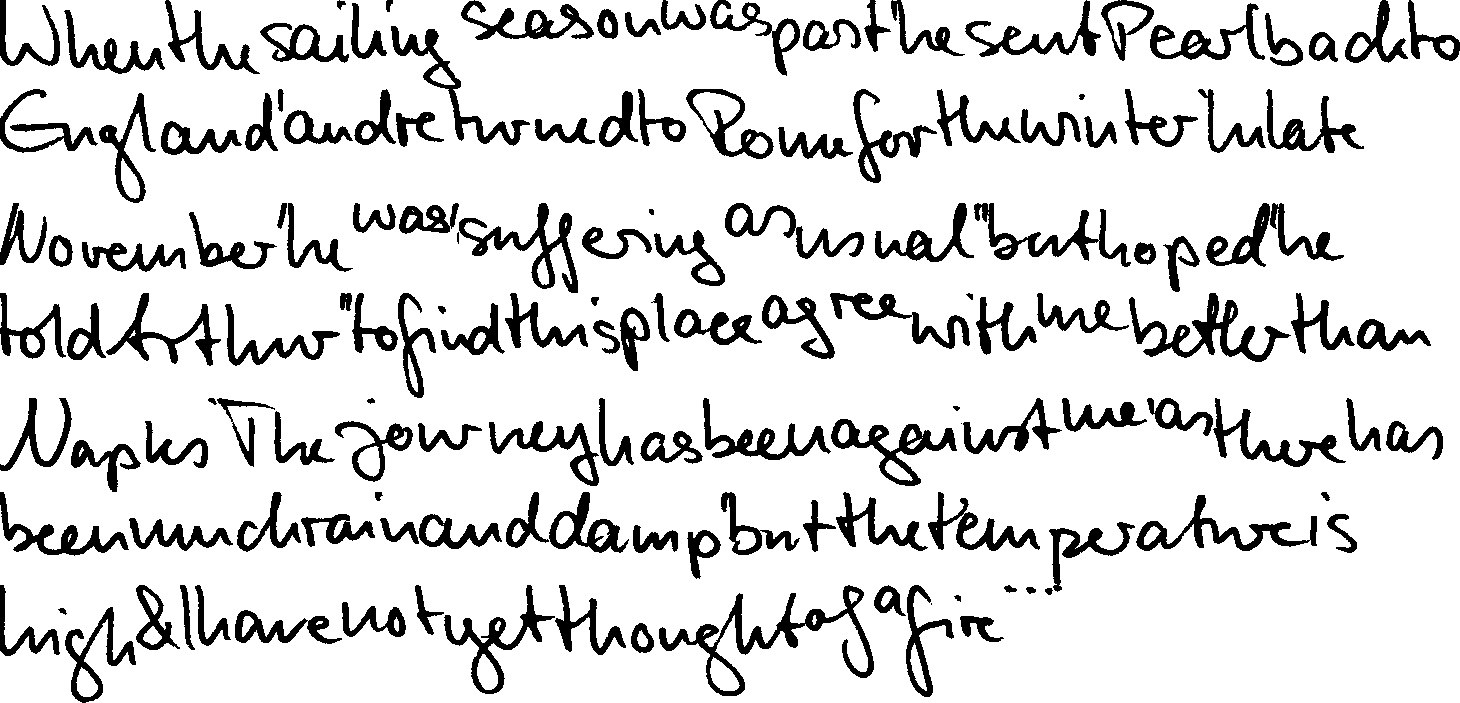 When the sailing season was past he sent Pearl back to
England, and returned to Rome for the winter. In late
November he was suffering as usual, "but hoped", he
told Arthur, "to find this place agree with me better than
Naples. The journey has been against me, as there has
been much rain and damp, but the temperature is
high & I have not yet thought of a fire ...